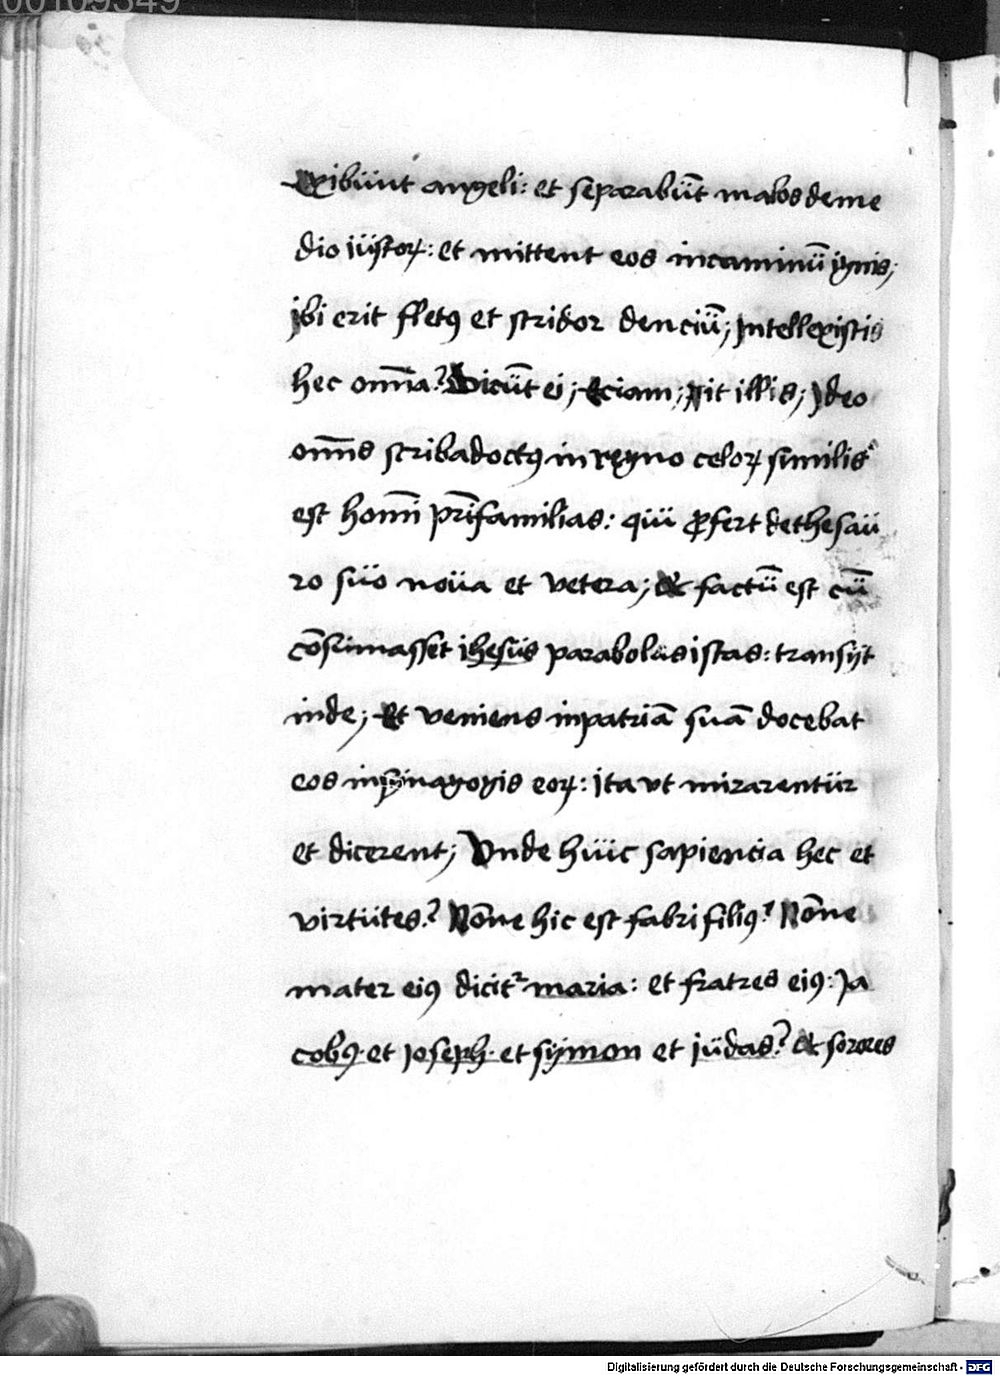 00109349
exibünt angeli: et separabūt malos deme
dio iüstoꝝ: et mittent eos incaminū ignis;
ibi erit fletꝯ et stridor denciū; Intellexistis
hec omīa? Dicūt ei; Eciam; Ait illis; Ideo
omīs scriba doctꝯ in regno celoꝝ similis
est homī prīfamilias: qui ꝓfert dethesaü
ro süo noüa et vetera; Et factū est cū
cōsūmasset ihesüs parabolas istas: transijt
inde; Et veniens inpatriā suā docebat
eos insinagogis eoꝝ: ita vt mirarentür
et dicerent; Vnde hüic sapiencia hec et
virtütes? Nōne hic est fabri filiꝯ? Nōne
mater eiꝯ dicit᷑ maria: et fratres eiꝯ: Ja
cobꝯ· et Joseph· et sÿmon et iüdas? Et sorores
Digitalisierung gefördert durch die Deutsche Forschungsgemeinschaft - DFG